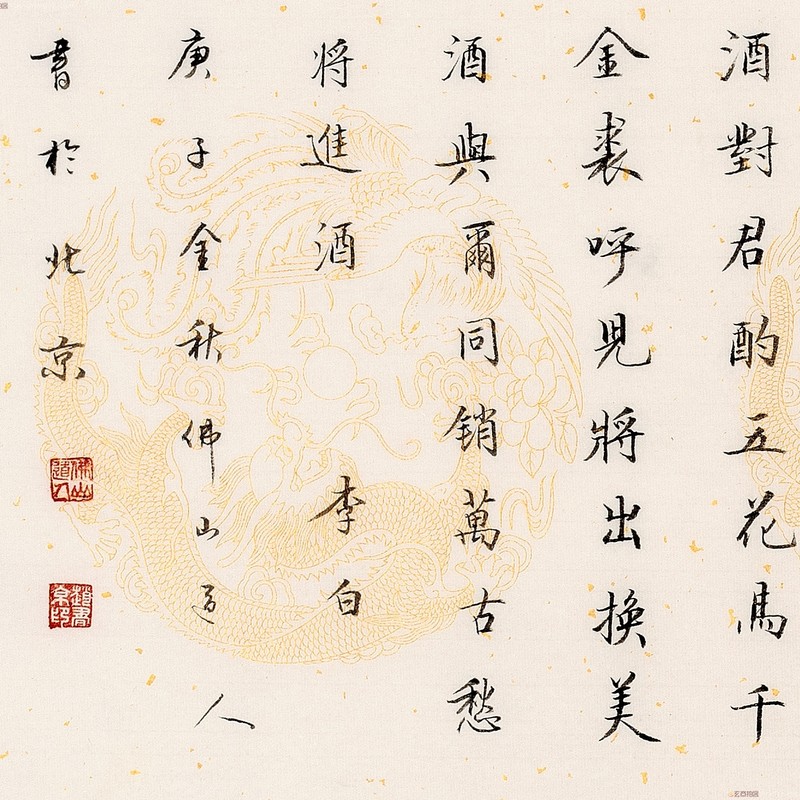 酒對君酌五花馬千
金裘呼兒將出換美
酒與爾同銷萬古愁
將進酒 李白
庚子金秋佛山道人
書於北京
佛山道人